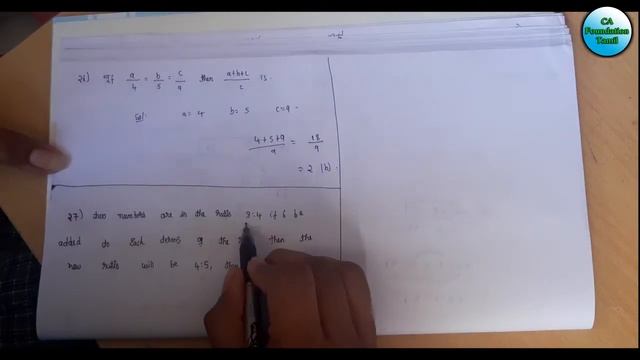 CA
Foundation
Tamil
26) If a/4 = b/5 = c/9 then a+b+c/c is.
Sol: a = 4 b = 5 c = 9.
4+5+9/9 = 18/9
= 2 (b).
27) two numbers are in the ratio 3:4 if 6 be
added to each terms of the then the
new ratio will be 4:5,